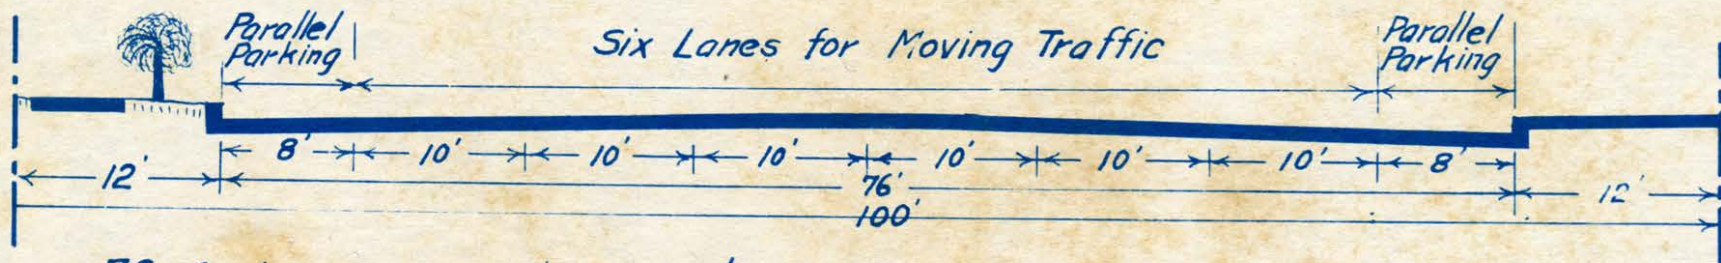 Parallel
Parking
Six Lanes for Moving Traffic
Parallel
Parking
8' 10' 10' 10' 10' 10' 10' 8'
12' 76' 12'
100'